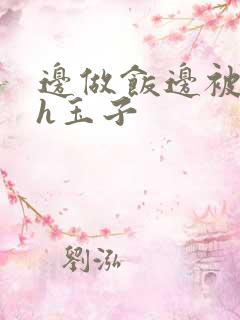 邊做飯邊被
h玉子
劉泓